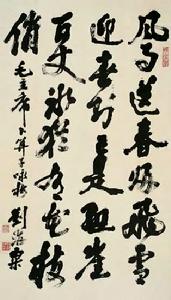 風雨送春歸飛雪
迎春到已是懸崖
百丈冰猶有花枝
俏 毛主席卜算子咏梅 劉海粟